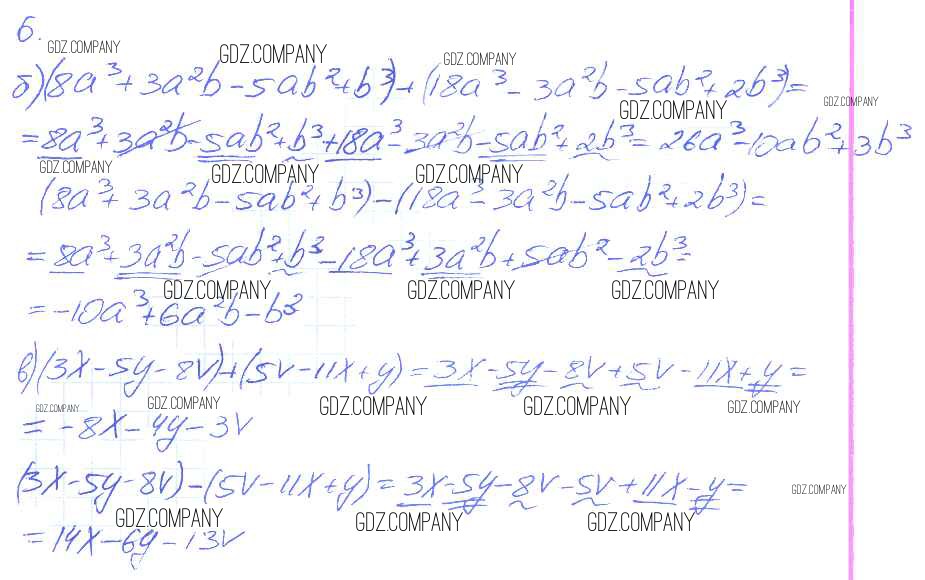 6.
GDZ.COMPANY GDZ.COMPANY GDZ.COMPANY
б) (8a³ + 3a²b - 5ab² + b³) + (18a³ - 3a²b - 5ab² + 2b³) =
GDZ.COMPANY GDZ.COMPANY
= 8a³ + 3a²b - 5ab² + b³ + 18a³ - 3a²b - 5ab² + 2b³ = 26a³ - 10ab² + 3b³
GDZ.COMPANY GDZ.COMPANY GDZ.COMPANY
(8a³ + 3a²b - 5ab² + b³) - (18a³ - 3a²b - 5ab² + 2b³) =
= 8a³ + 3a²b - 5ab² + b³ - 18a³ + 3a²b + 5ab² - 2b³ =
GDZ.COMPANY GDZ.COMPANY GDZ.COMPANY
= -10a³ + 6a²b - b³
в) (3x - 5y - 8v) + (5v - 11x + y) = 3x - 5y - 8v + 5v - 11x + y =
GDZ.COMPANY GDZ.COMPANY GDZ.COMPANY GDZ.COMPANY GDZ.COMPANY
= -8x - 4y - 3v
(3x - 5y - 8v) - (5v - 11x + y) = 3x - 5y - 8v - 5v + 11x - y =
GDZ.COMPANY
GDZ.COMPANY GDZ.COMPANY GDZ.COMPANY
= 14x - 6y - 13v